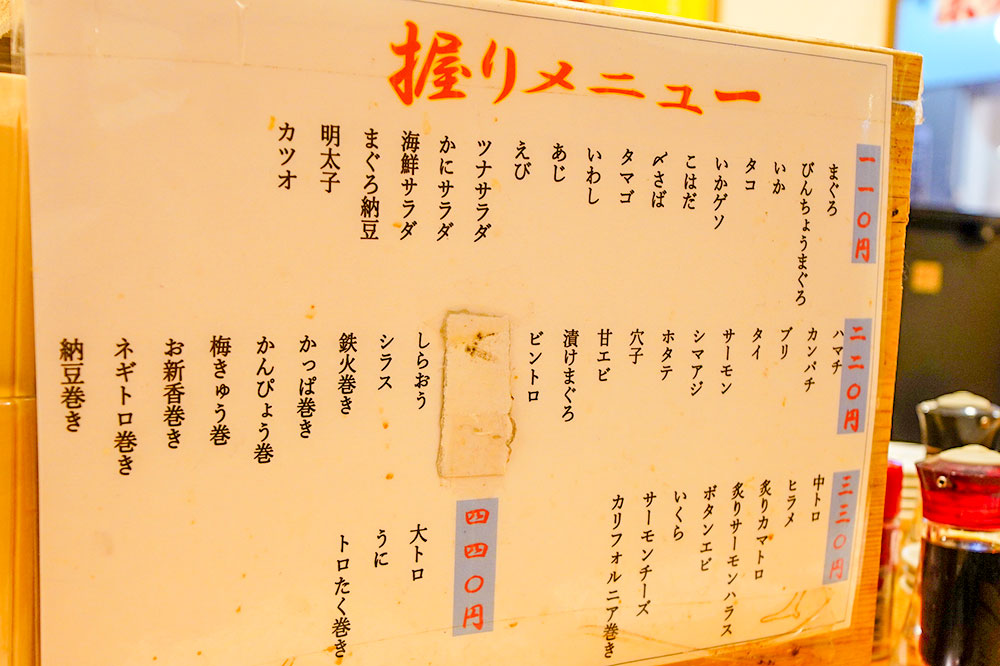 握りメニュー
一一〇円
まぐろ
びんちょうまぐろ
いか
タコ
いかゲソ
こはだ
〆さば
タマゴ
いわし
あじ
えび
ツナサラダ
かにサラダ
海鮮サラダ
まぐろ納豆
明太子
カツオ
二二〇円
ハマチ
カンパチ
ブリ
タイ
サーモン
シマアジ
ホタテ
穴子
甘エビ
漬けまぐろ
ビントロ
しらおう
シラス
鉄火巻き
かっぱ巻き
かんぴょう巻
梅きゅう巻
お新香巻き
ネギトロ巻き
納豆巻き
三三〇円
中トロ
ヒラメ
炙りカマトロ
炙りサーモンハラス
ボタンエビ
いくら
サーモンチーズ
カリフォルニア巻き
四四〇円
大トロ
うに
トロたく巻き